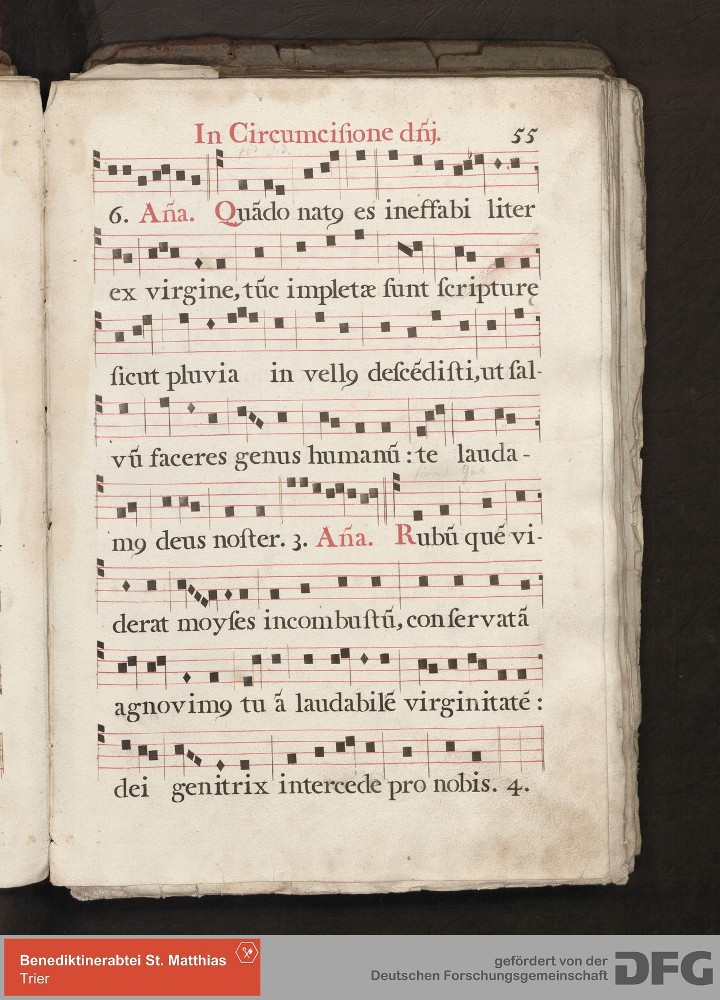 In Circumcisione dñj. 55
6. Añа. Quãdo natꝯ es ineffabi liter
ex virgine, tũc impletæ sunt scripture
sicut pluvia in vellꝯ descẽdisti, ut sal-
vũ faceres genus humanũ : te lauda-
mꝯ deus noster. 3. Aña. Rubũ quẽ vi-
derat moyses incombustũ, conservatã
agnovimꝯ tu ã laudabilẽ virginitatẽ :
dei genitrix intercede pro nobis. 4.
Benediktinerabtei St. Matthias
Trier
gefördert von der
Deutschen Forschungsgemeinschaft
DFG